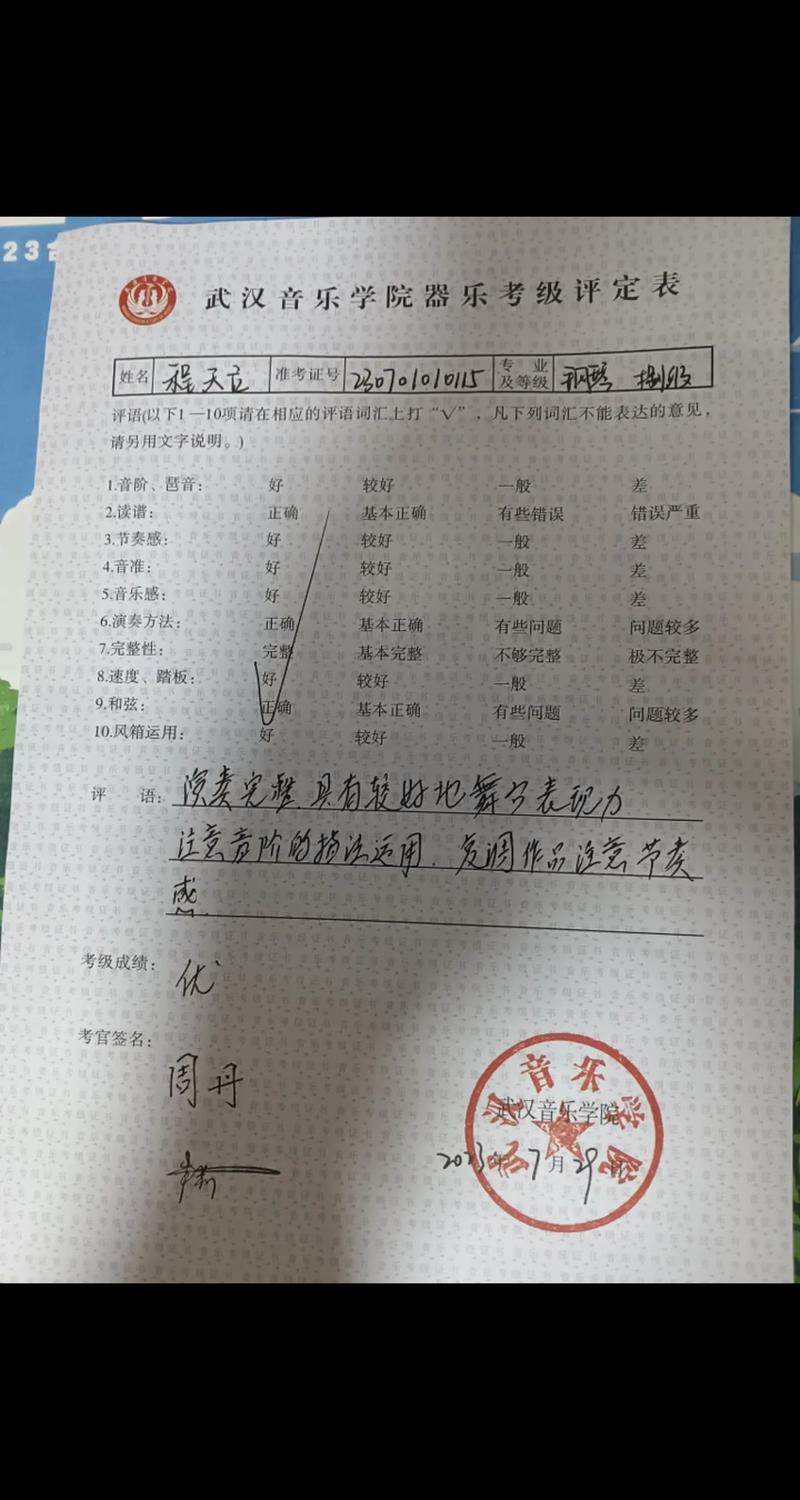 23
武汉音乐学院器乐考级评定表
姓名 程天立 准考证号 230701010115 专业及等级 钢琴 捌级
评语(以下1—10项请在相应的评语词汇上打“√”，凡下列词汇不能表达的意见，
请另用文字说明。)
1.音阶、琶音： 好 较好 一般 差
2.读谱： 正确 基本正确 有些错误 错误严重
3.节奏感： 好 较好 一般 差
4.音准： 好 较好 一般 差
5.音乐感： 好 较好 一般 差
6.演奏方法： 正确 基本正确 有些问题 问题较多
7.完整性： 完整 基本完整 不够完整 极不完整
8.速度、踏板： 好 较好 一般 差
9.和弦： 正确 基本正确 有些问题 问题较多
10.风箱运用： 好 较好 一般 差
评 语：演奏完整，具有较好地舞台表现力
注意音阶的指法运用．复调作品注意节奏
感．
考级成绩： 优
考官签名：
周丹
武汉音乐学院
武汉音乐学院
2023年7月29日